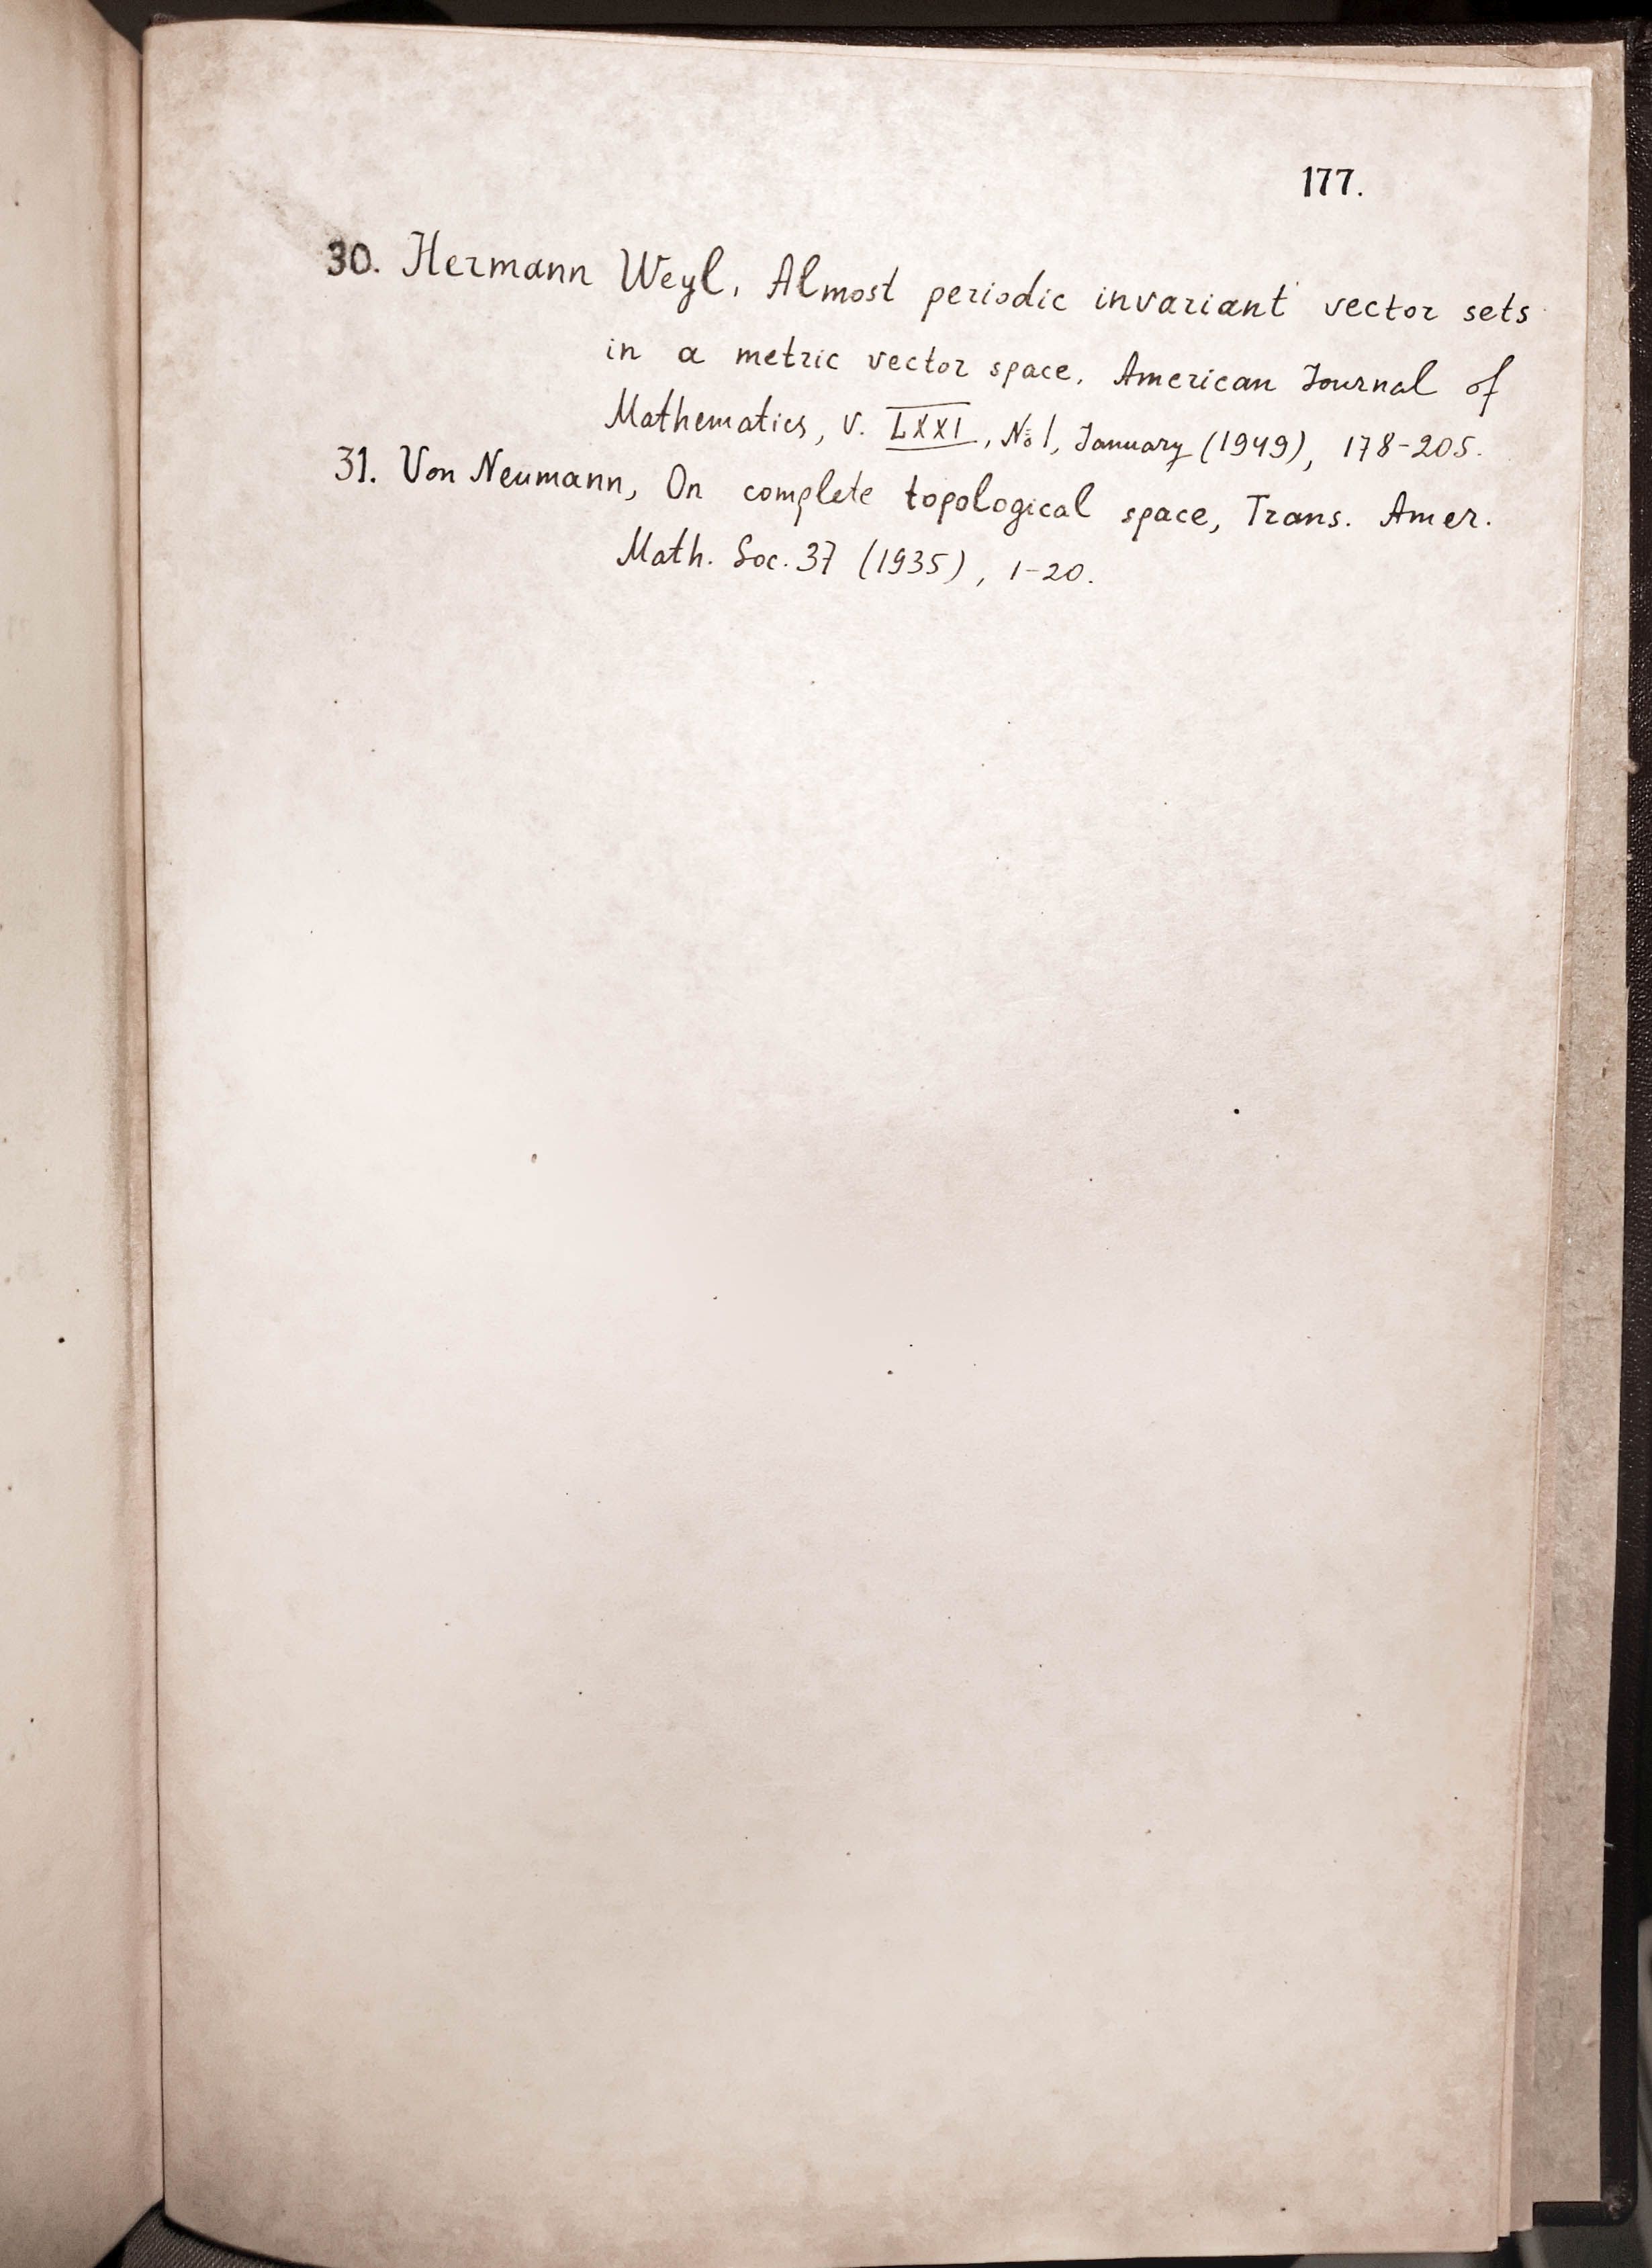 177.
30. Hermann Weyl, Almost periodic invariant vector sets
in a metric vector space. American Journal of
Mathematics, V. LXXI, № 1, January (1949), 178-205.
31. Von Neumann, On complete topological space, Trans. Amer.
Math. Soc. 37 (1935), 1-20.